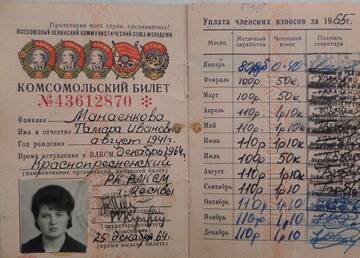 Пролетарии всех стран, соединяйтесь!
ВСЕСОЮЗНЫЙ ЛЕНИНСКИЙ КОММУНИСТИЧЕСКИЙ СОЮЗ МОЛОДЕЖИ
КОМСОМОЛЬСКИЙ БИЛЕТ
№43612870
Фамилия Манаенкова
Имя и отчество Тамара Ивановна
Год рождения август 1941г.
Время вступления в ВЛКСМ декабрь 1964г.
Краснопресненский
(наименование организации, выдавшей билет)
РК ВЛКСМ
г. Москвы
25 декабря 64г.
(время выдачи билета)
Уплата членских взносов за 1965г.
Месяц Месячный заработок Членский взнос Подпись секретаря
Январь 0-40
Февраль 100р. 50к.
Март 100р. 50к.
Апрель 110р 1р10к
Май 110р. 1р10к
Июнь 110р. 1р10к
Июль 100р 50к
Август 110р. 1р10к
Сентябрь 110р. 1р10к
Октябрь 110р 1р10к
Ноябрь 110р 1р10к
Декабрь 110р. 1р10к